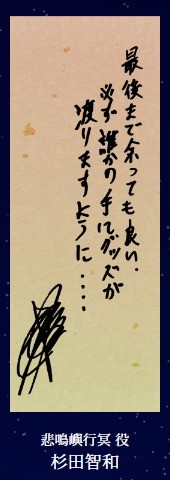 最後まで余っても良い.
必ず誰かの手にグッズが
渡りますように....
悲鳴嶼行冥 役
杉田智和